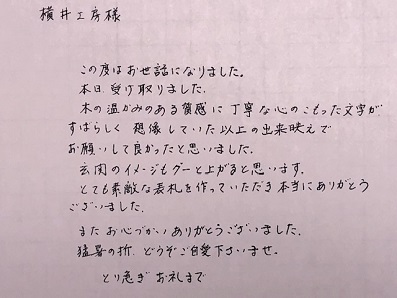 横井工房様
この度はお世話になりました。
本日受け取りました。
木の温かみのある質感に丁寧な心のこもった文字が
すばらしく想像していた以上の出来映えで
お願いして良かったと思いました。
玄関のイメージもグーと上がると思います。
とても素敵な表札を作っていただき本当にありがとう
ございました。
またお心づかいありがとうございました。
猛暑の折、どうぞご自愛下さいませ。
とり急ぎお礼まで